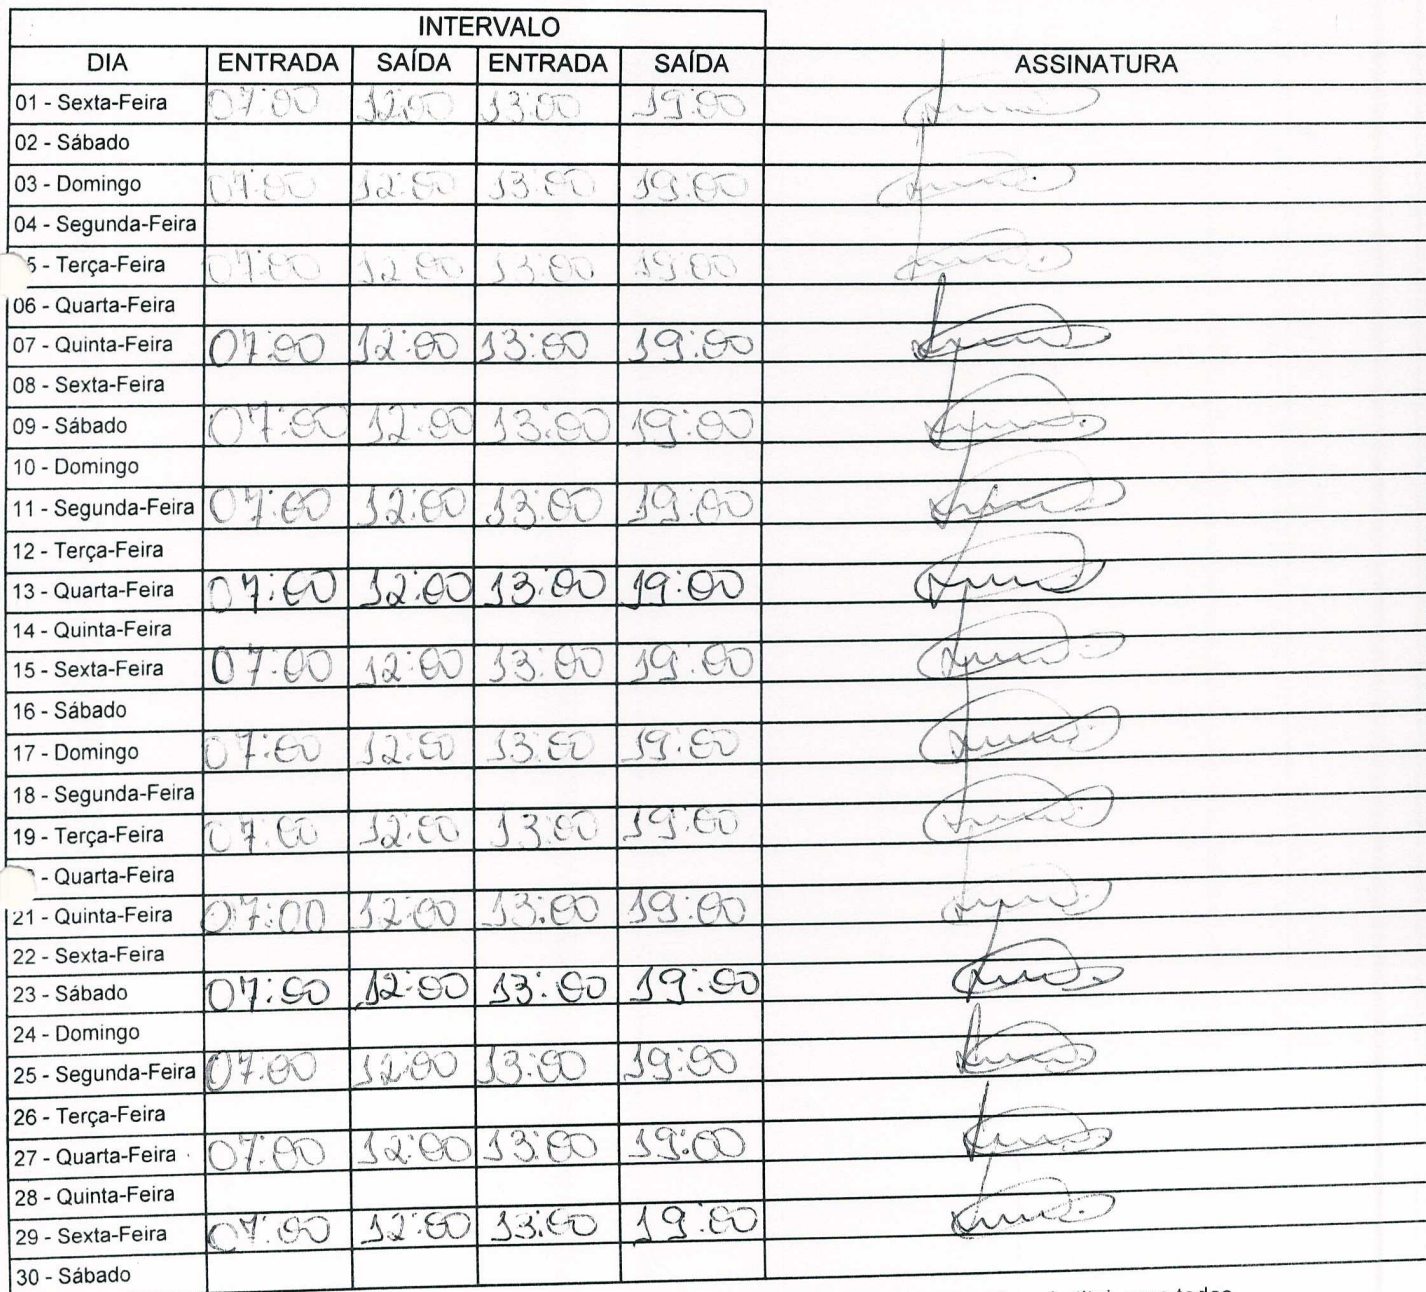 INTERVALO
DIA ENTRADA SAÍDA ENTRADA SAÍDA ASSINATURA
01 - Sexta-Feira 07:00 12:00 13:00 19:00
02 - Sábado
03 - Domingo 07:00 12:00 13:00 19:00
04 - Segunda-Feira
5 - Terça-Feira 07:00 12:00 13:00 19:00
06 - Quarta-Feira
07 - Quinta-Feira 07:00 12:00 13:00 19:00
08 - Sexta-Feira
09 - Sábado 07:00 12:00 13:00 19:00
10 - Domingo
11 - Segunda-Feira 07:00 12:00 13:00 19:00
12 - Terça-Feira
13 - Quarta-Feira 07:00 12:00 13:00 19:00
14 - Quinta-Feira
15 - Sexta-Feira 07:00 12:00 13:00 19:00
16 - Sábado
17 - Domingo 07:00 12:00 13:00 19:00
18 - Segunda-Feira
19 - Terça-Feira 07:00 12:00 13:00 19:00
- Quarta-Feira
21 - Quinta-Feira 07:00 12:00 13:00 19:00
22 - Sexta-Feira
23 - Sábado 07:00 12:00 13:00 19:00
24 - Domingo
25 - Segunda-Feira 07:00 12:00 13:00 19:00
26 - Terça-Feira
27 - Quarta-Feira 07:00 12:00 13:00 19:00
28 - Quinta-Feira
29 - Sexta-Feira 07:00 12:00 13:00 19:00
30 - Sábado